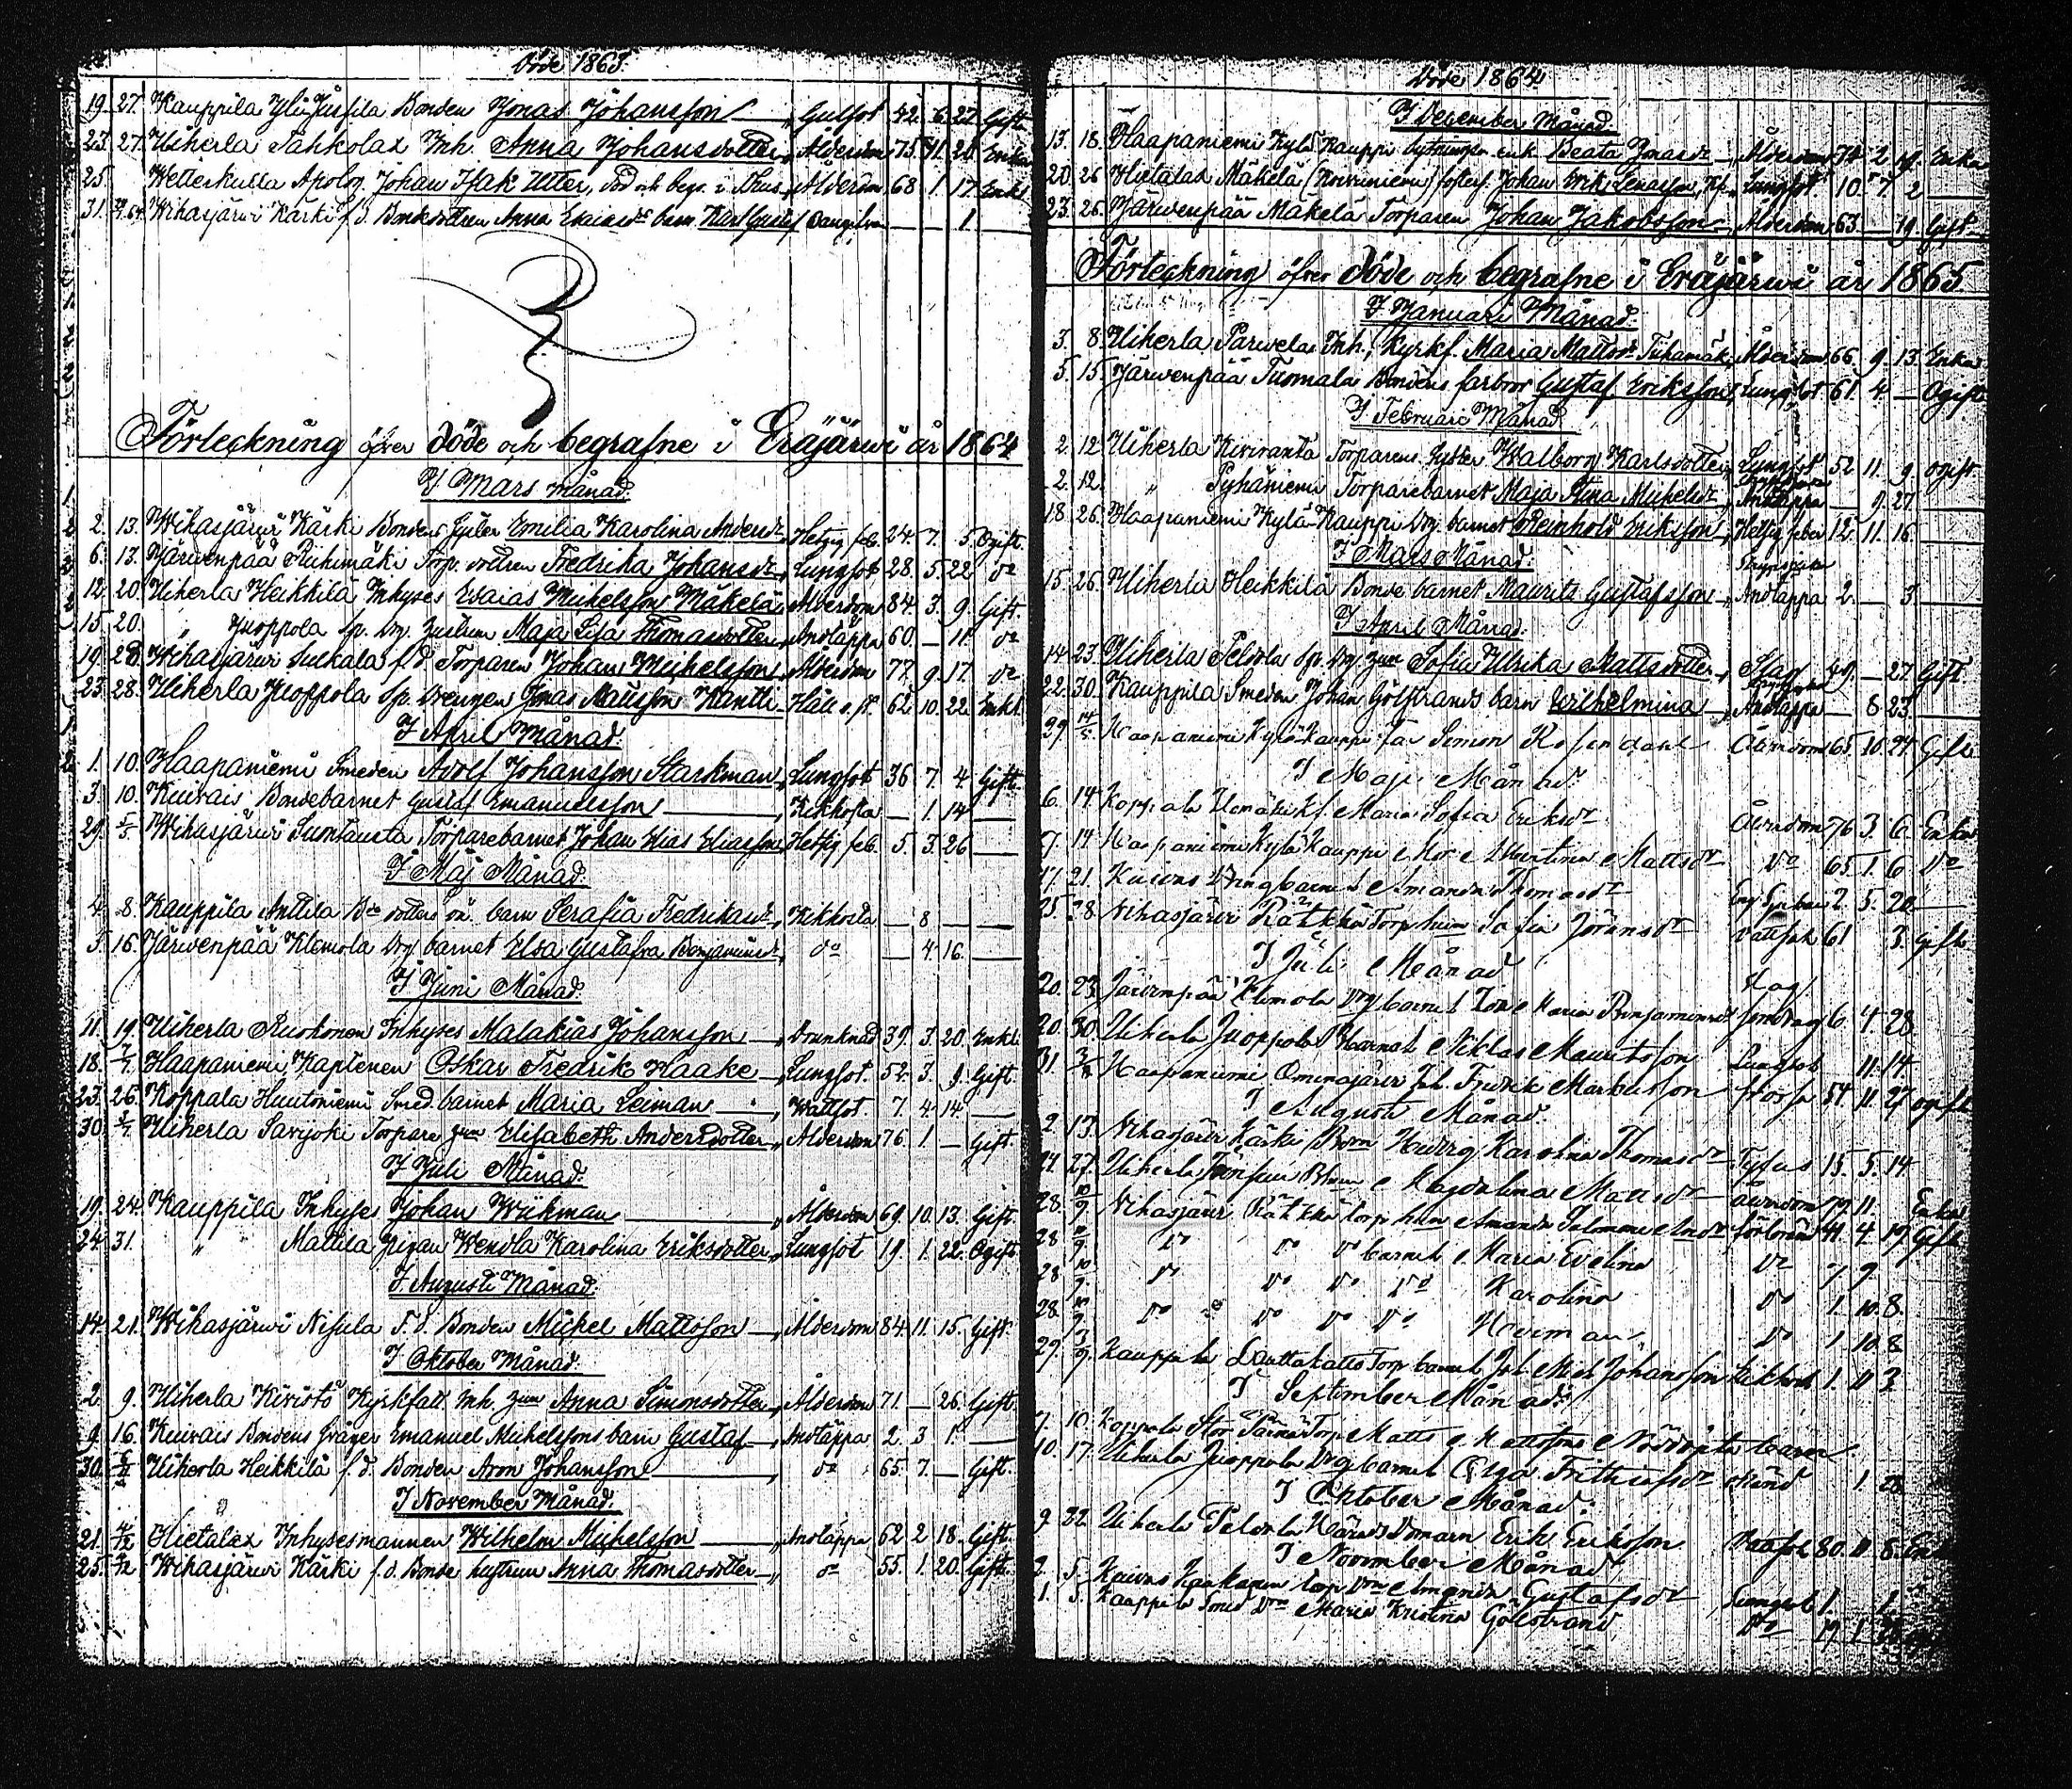 Döde 1863.
19. 27. Kauppila Yli Jussila Bonden Jonas Johansson „ Lungsot 42. 6. 27. Gift.
23. 27. Uiherla Tahkolax Inh. Anna Johansdotter „ Ålderdom 75. 11. 20. Enka
25. Wetterkulla Apolog. Johan Isak Utter, död och begr. i „ Ålderdm 68. 1. 17. Enkl.
31. Wihasjärwi Kärki f. d. Bondedottren Anna barn Karl Gustaf 1
Förteckning öfver döde och begrafne i Eräjärwi år 1864
I Mars Månad.
2. 13. Wihasjärwi Kärki Bondens syster Emilia Karolina Andersdr „ Hetzig feb. 24. 7. 5. Ogift.
6. 13. Järwenpää Riihimäki Torp. dottren Fredrika Johansdr „ Lungsot 28. 5. 22 do
12. 20. Uiherla Heikkilä Inhyses Esaias Michelsson Mäkelä „ Ålderdom 84. 3. 9. Gift.
15. 20. „ Juoppola Sp. Drg. hustrun Maja Lisa Thomasdotter „ Andtäppa 60. — 11. do
19. 28. Wihasjärwi Sulkala f. d. Torparen Johan Michelsson „ Ålderdom 77. 9. 17. do
23. 28. Uiherla Juoppola Sp. Drengen Jonas Mattsson Kantti „ Håll o. st. 62. 10. 22. Enkl.
I April Månad.
1. 10. Haapaniemi Smeden Adolf Johansson Starkman „ Lungsot 36. 7. 4. Gift.
3. 10. Kuivais Bondebarnet Gustaf Emanuelsson „ Kikhosta — 1. 14 —
29. Wihasjärwi Suntausta Torparebarnet Johan Elias Eliasson „ Hetzig feb. 5. 3. 26 —
I Maj Månad.
4. 8. Kauppila Anttila Bde dotters oä. barn Serafia Fredrikadr „ Kikhosta — 8 —
5. 16. Järwenpää Klemola Drg. barnet Elsa Gustafva Benjaminsdr „ do — 4. 16. —
I Juni Månad.
11. 19. Uiherla Ruokonen Inhyses Malakias Johansson „ Drunknad 39. 3. 20. Enkl.
18. Haapaniemi Kaptenen Oskar Fredrik Haake „ Lungsot. 52. 3. 9. Gift.
23. 26. Koppala Huutoniemi Smed. barnet Maria Leiman „ Wattsot 7. 4. 14. —
30. Uiherla Savijoki Torpare hun Elisabeth Andersdotter „ Ålderdom 76. 1. — Gift.
I Juli Månad.
19. 24. Kauppila Inhyses Johan Wikman „ Ålderdom 69. 10. 13. Gift.
24. 31. „ Mattila Pigan Wendla Karolina Eriksdotter „ Lungsot 19. 1. 22. Ogift
I Augusti Månad.
14. 21. Wihasjärwi Nisula F. d. Bonden Michel Mattsson „ Ålderdom 84. 11. 15. Gift.
I Oktober Månad.
2. 9. Uiherla Kivistö Kyrkfatt. Inh. hun Anna Simonsdotter „ Ålderdom 71. — 26. Gift.
9. 16. Kuivais Bondens Emanuel Michelssons barn Gustaf „ Andtäppa 2. 3. 1. —
30. Uiherla Heikkilä f. d. Bonden Aron Johansson „ do 65. 7. — Gift.
I November Månad.
21. Hietalax Inhysesmannen Wilhelm Michelsson „ Andtäppa 62. 2. 18. Gift.
25. Wihasjärwi Kärki f. d. Bonde hustrun Anna Thomasdotter „ do 55. 1. 20. Gift.
Döde 1864
I December Månad.
13. 18. Haapaniemi Kylä Kauppi enk. Beata Jonasdr „ Ålderdom 74. 2. 19. Enka
20. 26 Hietalax Mäkelä (Koivuniemi) fosters. Johan Erik „ Lungsot 10. 7. 2 —
23. 26. Järwenpää Mäkelä Torparen Johan Jakobsson „ Ålderdom 63. — 19. Gift
Förteckning öfver döde och begrafne i Eräjärwi år 1865
I Januari Månad.
3. 8. Uiherla Parwela Inh. Kyrkf. Maria Mattsdr „ Ålderdom 66. 9. 13. Enka
5. 15. Järwenpää Tuomala Bondens farbror Gustaf Eriksson „ Lungsot 61. 4. — Ogift
I Februari Månad.
2. 12. Uiherla Kiviranta Torparens syster Walborg Karlsdotter „ Lungsot 52. 11. 9. Ogift
2. 12. „ Pyhäniemi Torparebarnet Maja Stina Michelsdr „ Andtäppa — 9. 27 —
18. 26. Haapaniemi Kylä-Kauppi Drg. barnet Reinhold Eriksson „ Hetsig feber 12. 11. 16 —
I Mars Månad.
15. 26. Uiherla Heikkilä Bonde barnet Maurits Gustafsson „ Andtäppa 2. — 3. —
I April Månad.
14. 23. Uiherla Peldola Sp. Drg. hun Sofia Ulrika Mattsdotter „ Slag 49. — 27. Gift.
22. 30. Kauppila Smeden Johan Gölstrands barn Wilhelmina „ Andtäppa — 8. 23. —
29. Haapaniemi Kylä-Kauppi Far Simon Rosendahl Ålderdom 65. 10. 24 Gift
I Maji Månad
6. 14. Koppala Kf. Maria Sofia Eriksdr Ålderdom 76. 3. 6. Enka
9. 14. Haapaniemi Kylä Kauppi Mor Albertina Mattsdr do 65. 1. 6. do
17. 21. Kuivais Drängbarnet Amanda Thomasdr 2. 5. 20 —
25. 28. Wihasjärwi Rätkkä Torp. hun Sofia Jöransdr Vattsot 61 3. Gift
I Juli Månad
20. 23. Järwenpää Klemola Drgbarnet Maria Benjaminsdr 6. 4. 28
20. 30. Uiherla Juoppola Barnet Niklas Mauritsson Lungsot 11. 14.
31. Haapaniemi Joh. Fredrik Markusson 54. 11. 27. ogift
I Augusti Månad.
2. 13. Wihasjärwi Kärki Hedvig Karolina Thomasdr Tyfus 15. 5. 14
24. 27. Uiherla Magdalena Mattsdr Ålderdom 79. 11. Enka
28. Wihasjärwi Rätkkä Torp. hun Amanda Salomee 41. 4. 19. Gift
28. do do do barnet Maria Evelina do 7. 9.
28. do do do do Karolina do 1. 10. 8.
28. do do do do Herman do 1. 10. 8
29. Kauppila Lauttakatto Torp barnet Joh. Mich. Johansson Kikhost 1. 11. 3
I September Månad:
7. 10. Koppala Stor Torp. Matts Mattsons Nöddöpta barn
10. 17. Uiherla Juoppola Drg barnet Olga Frithiofsdr okänd 1. 28.
I Oktober Månad:
9. 22. Uiherla Peldola Härads Domarn Erik Eriksson 80. 11. 8. Enkl
I November Månad
2. 5. Kuivais Torp. Amanda Gustafsdr Lungsot 1.
1. 5. Kauppila Smed Maria Kristina Gölstrand do 19. 1.